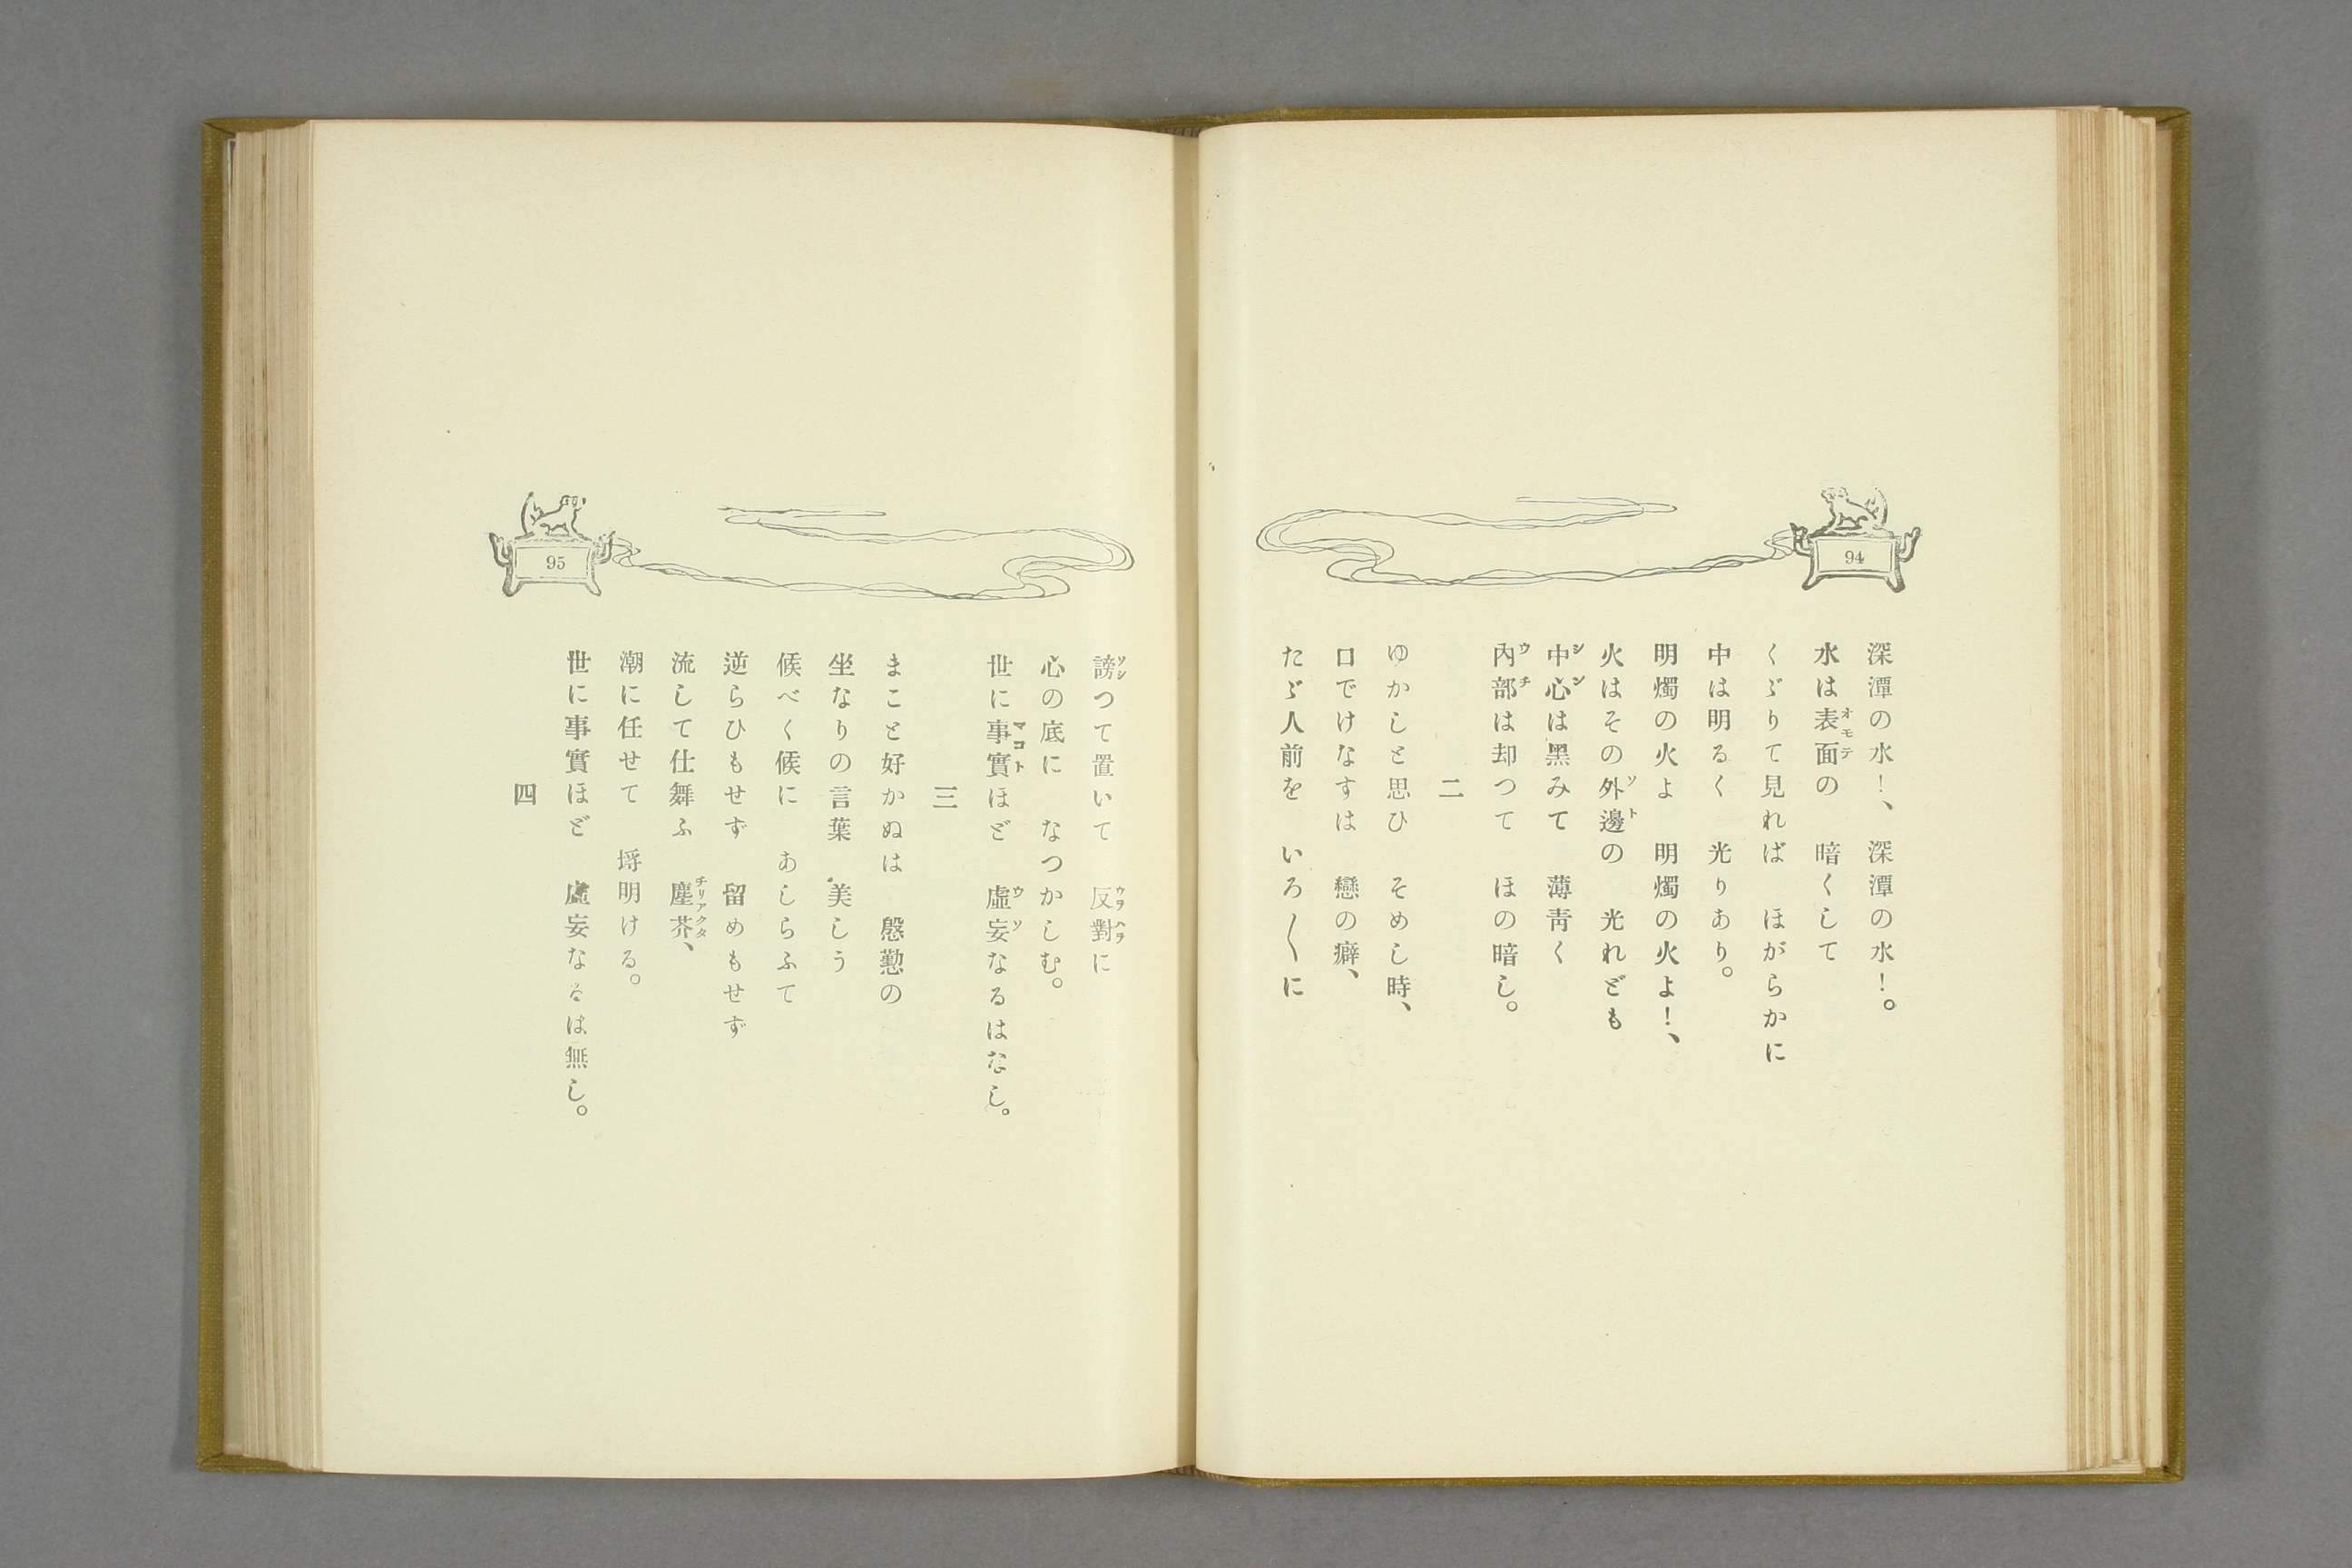 94
深潭の水！、深潭の水！。
水は表面の　暗くして
くゞりて見れば　ほがらかに
中は明るく　光りあり。
明燭の火よ　明燭の火よ！、
火はその外邊の　光れども
中心は黑みて　薄靑く
內部は却つて　ほの暗し。
二
ゆかしと思ひ　そめし時、
口でけなすは　戀の癖、
たゞ人前を　いろ〳〵に
95
謗つて置いて　反對に
心の底に　なつかしむ。
世に事實ほど　虛妄なるはなし。
三
まこと好かぬは　慇懃の
坐なりの言葉　美しう
候べく候に　あしらふて
逆らひもせず　留めもせず
流して仕舞ふ　塵芥、
潮に任せて　埓明ける。
世に事實ほど　虛妄なるは無し。
四